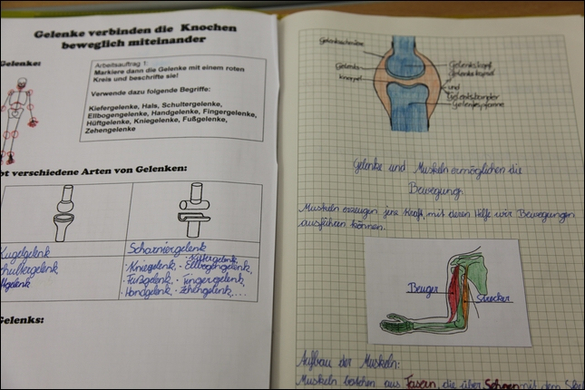 Gelenke verbinden die Knochen
beweglich miteinander
Gelenke:
Arbeitsauftrag 1:
Markiere dann die Gelenke mit einem roten
Kreis und beschrifte sie!
Verwende dazu folgende Begriffe:
Kiefergelenke, Hals, Schultergelenke,
Ellbogengelenke, Handgelenke, Fingergelenke,
Hüftgelenke, Kniegelenke, Fußgelenke,
Zehengelenke
bt verschiedene Arten von Gelenken:
Kugelgelenk
Scharniergelenk
Schultergelenk
Kniegelenk, Ellbogengelenk,
Fußgelenk, Fingergelenk,
Handgelenk, Zehengelenk,...
Gelenks:
Gelenkschmiere
Gelenkkopf
Gelenk-
knorpel
Gelenkkapsel
und
Gelenkpfanne
Gelenke und Muskeln ermöglichen die
Bewegung.
Muskeln erzeugen jene Kraft, mit deren Hilfe wir Bewegungen
ausführen können.
Beuger
Strecker
Aufbau der Muskeln:
Muskeln bestehen aus Fasern, die über Sehnen mit dem